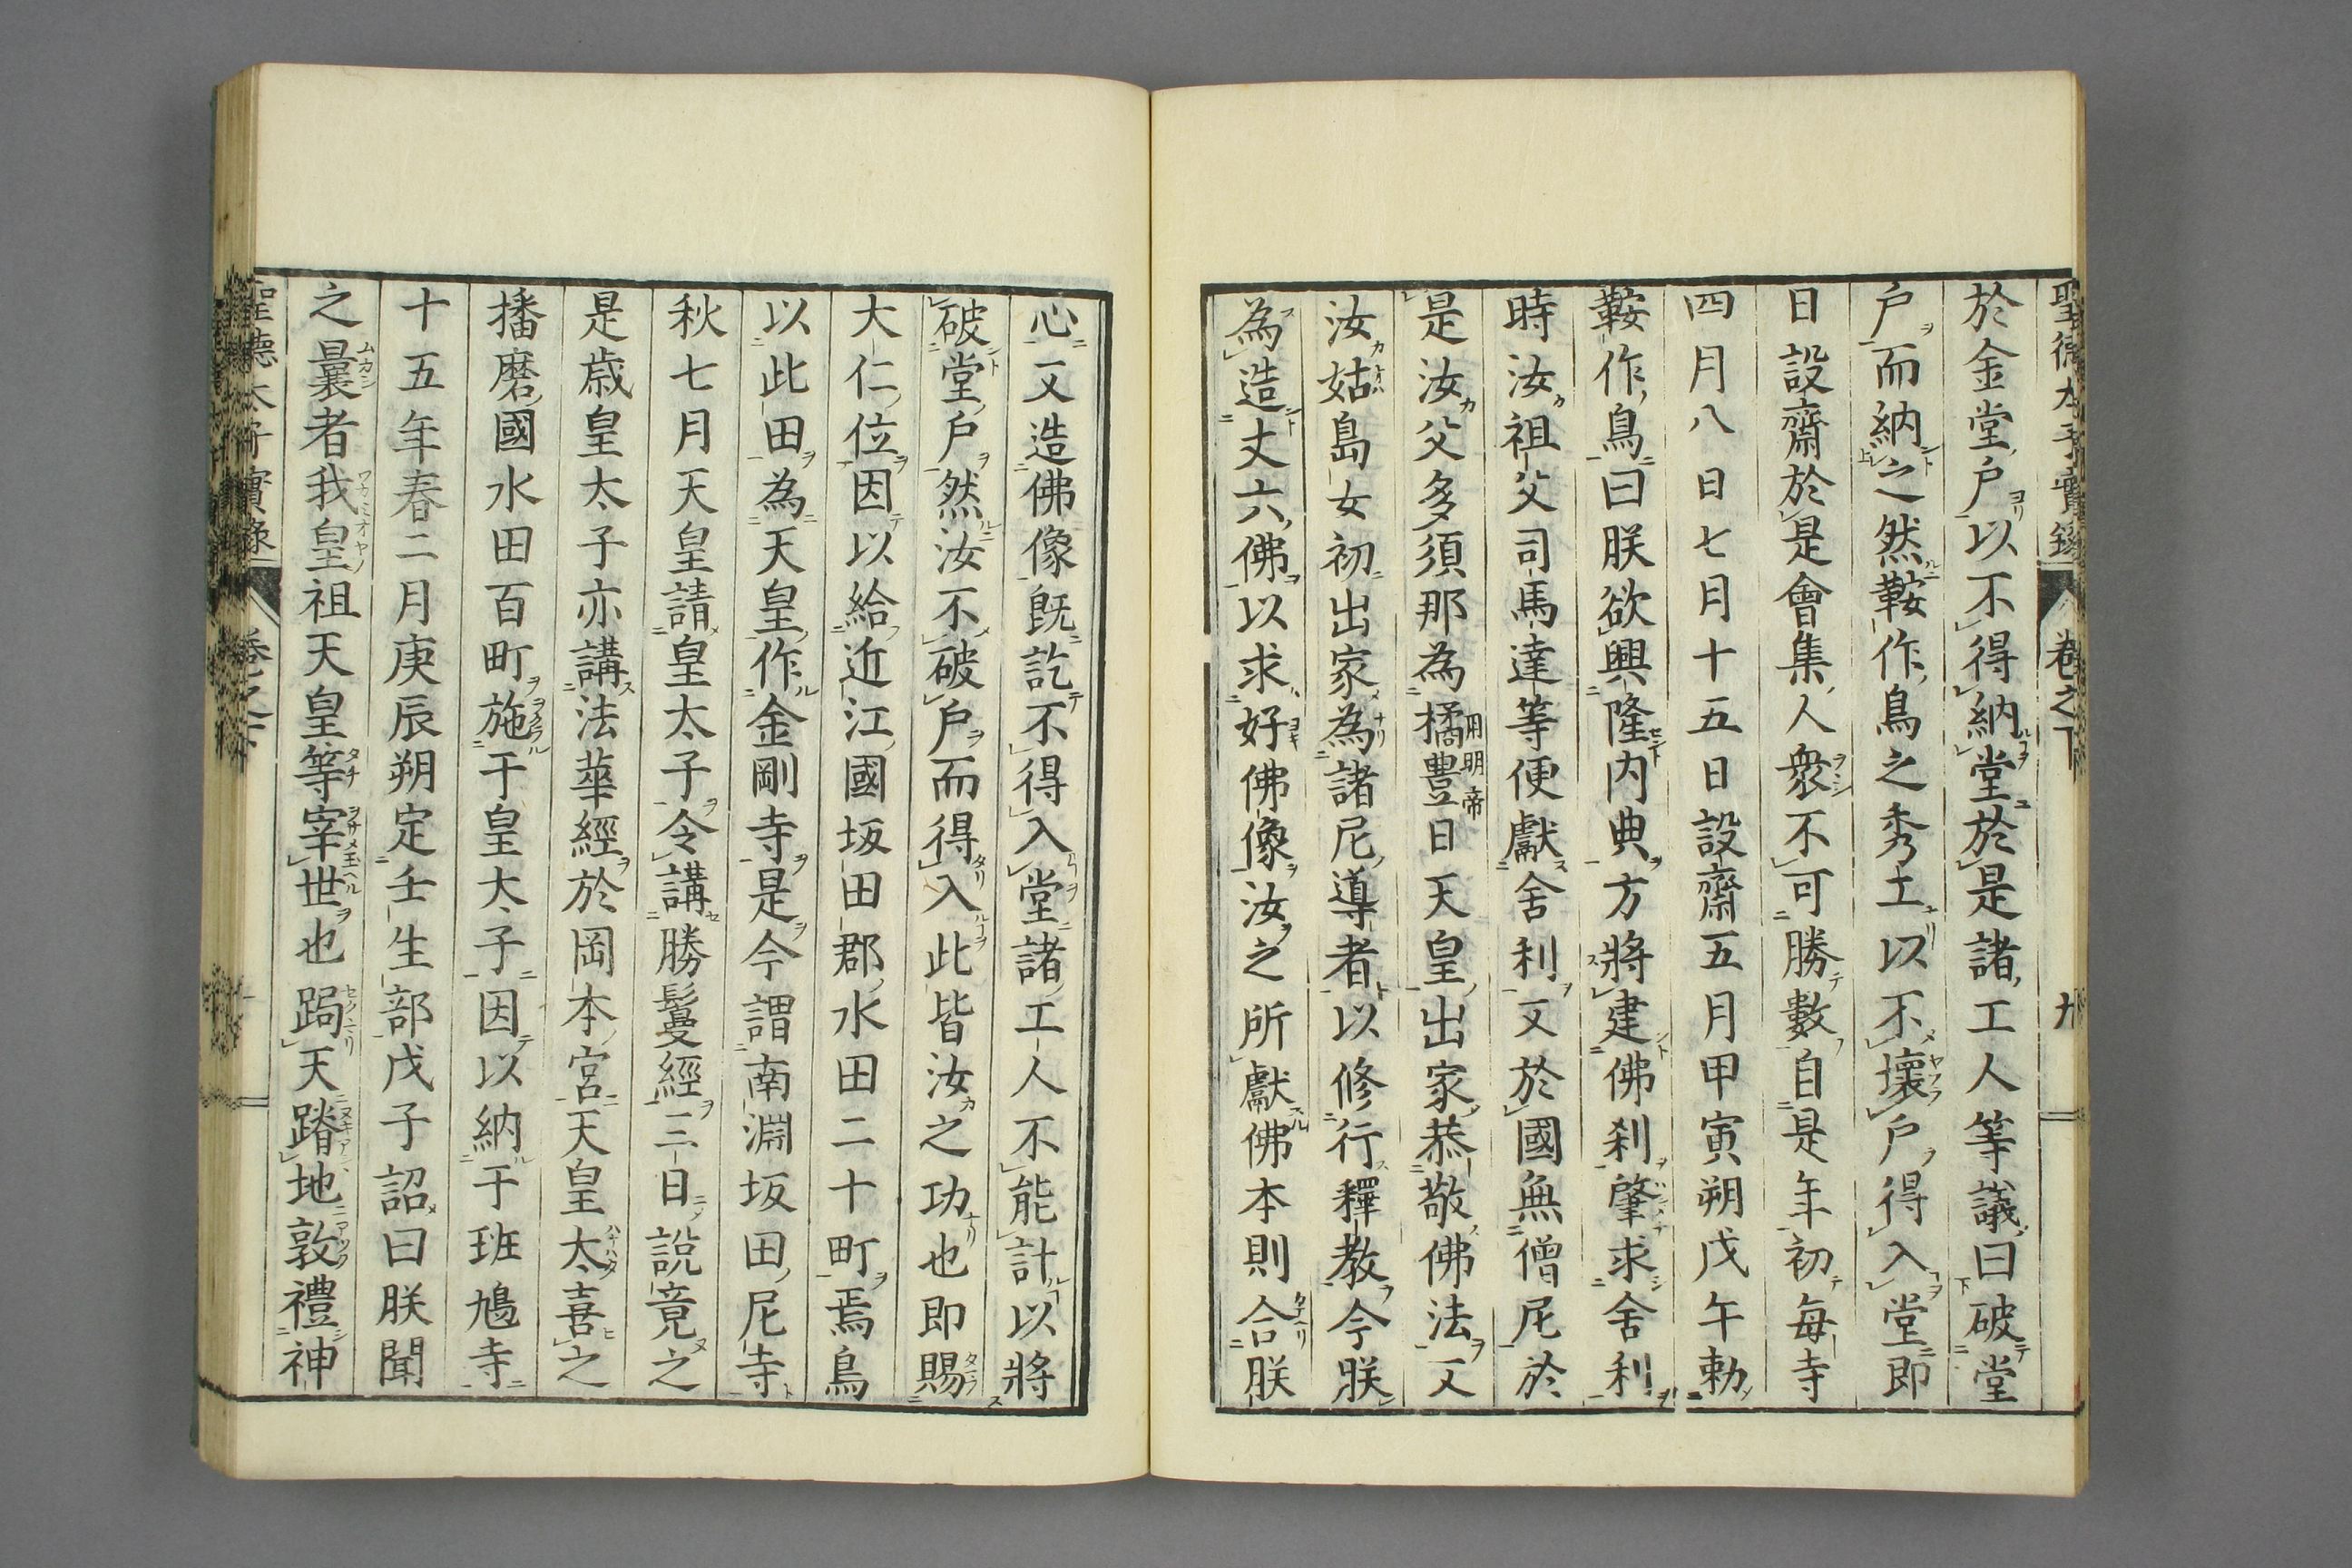 聖徳太子實録 卷之下 九
於金堂戸以不得納堂於是諸工人等議曰破堂
戸而納之然鞍作鳥之秀工以不壞戸得入堂即
日設齋於是會集人衆不可勝數自是年初毎寺
四月八日七月十五日設齋五月甲寅朔戊午勅
鞍作鳥曰朕欲興隆内典方將建佛刹肇求舍利
時汝祖父司馬達等便獻舍利又於國無僧尼於
是汝父多須那為橘豊日天皇出家恭敬佛法又
用明帝
汝姑島女初出家為諸尼導者以修行釋教今朕
為造丈六佛以求好佛像汝之所獻佛本則合朕
心又造佛像既訖不得入堂諸工人不能計以將
破堂戸然汝不破戸而得入此皆汝之功也即賜
大仁位因以給近江國坂田郡水田二十町焉鳥
以此田為天皇作金剛寺是今謂南淵坂田尼寺
秋七月天皇請皇太子令講勝鬘經三日說竟之
是歳皇太子亦講法華經於岡本宮天皇太喜之
播磨國水田百町施于皇太子因以納于班鳩寺
十五年春二月庚辰朔定壬生部戊子詔曰朕聞
之曩者我皇祖天皇等宰世也跼天蹐地敦禮神
聖德太子實錄 卷之下